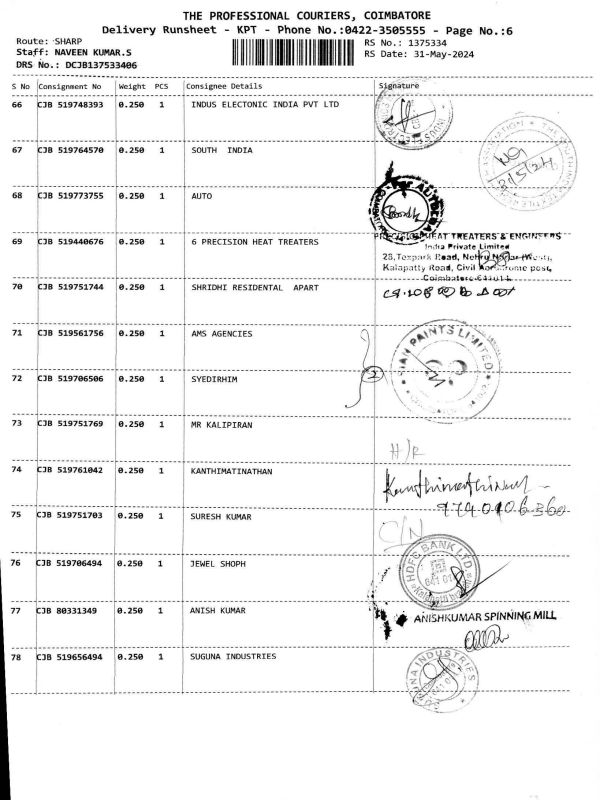 THE PROFESSIONAL COURIERS, COIMBATORE
Delivery Runsheet - KPT - Phone No.:0422-3505555 - Page No.:6
Route: SHARP
Staff: NAVEEN KUMAR.S
DRS No.: DCJB137533406
RS No.: 1375334
RS Date: 31-May-2024
S No Consignment No Weight PCS Consignee Details Signature
66 CJB 519748393 0.250 1 INDUS ELECTONIC INDIA PVT LTD
67 CJB 519764570 0.250 1 SOUTH INDIA
68 CJB 519773755 0.250 1 AUTO
69 CJB 519440676 0.250 1 6 PRECISION HEAT TREATERS
PRECISION HEAT TREATERS & ENGINEERS
India Private Limited
28, Texpark Road, Nehru Nagar (West),
Kalapatty Road, Civil Aerodrome post,
Coimbatore-641014
70 CJB 519751744 0.250 1 SHRIDHI RESIDENTAL APART
71 CJB 519561756 0.250 1 AMS AGENCIES
IAN PAINTS LIMITED
72 CJB 519706506 0.250 1 SYEDIRHIM
2
73 CJB 519751769 0.250 1 MR KALIPIRAN
H/R
74 CJB 519761042 0.250 1 KANTHIMATINATHAN
Kanthimathinathan
75 CJB 519751703 0.250 1 SURESH KUMAR
C/N
76 CJB 519706494 0.250 1 JEWEL SHOPH
HDFC BANK LTD.
77 CJB 80331349 0.250 1 ANISH KUMAR
ANISHKUMAR SPINNING MILL
78 CJB 519656494 0.250 1 SUGUNA INDUSTRIES
SUGUNA INDUSTRIES